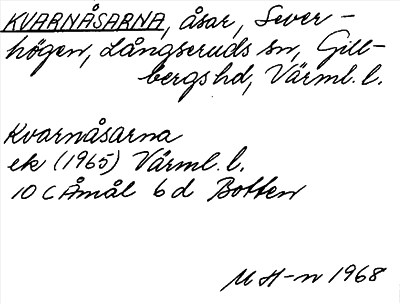 KVARNÅSARNA, åsar, Sever-
högen, Långseruds sn, Gill-
bergs hd, Värml. l.
Kvarnåsarna
ek (1965) Värml. l.
10 C Åmål 6 d Botten
M H-n 1968